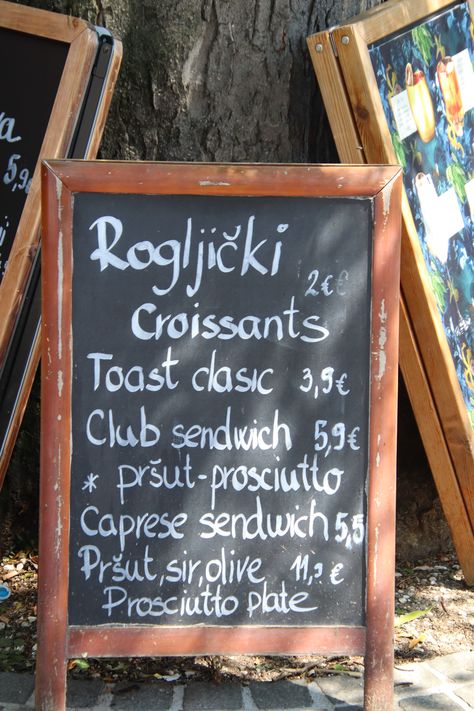 Rogljički
2€
Croissants
Toast clasic 3,9€
Club sendwich 5,9€
* pršut-prosciutto
Caprese sendwich 5,5
Pršut, sir, olive €
Prosciutto plate
5,9